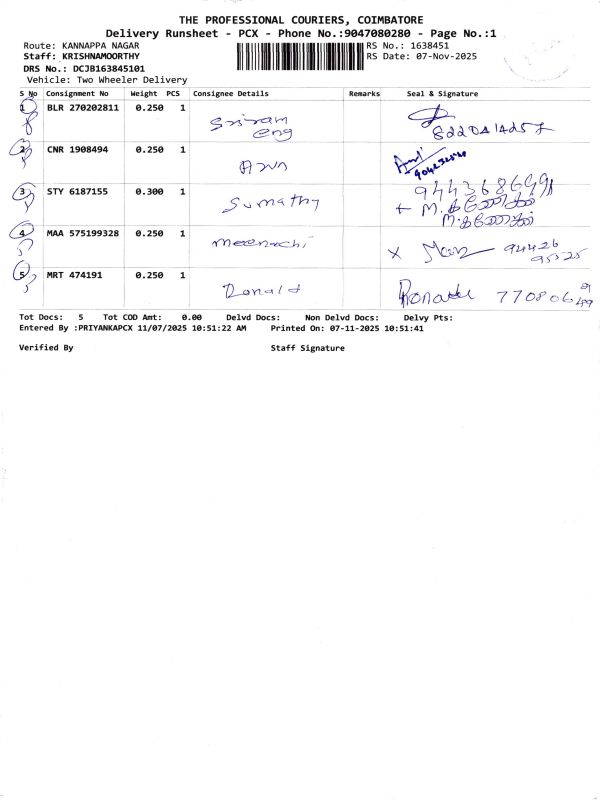 THE PROFESSIONAL COURIERS, COIMBATORE
Delivery Runsheet - PCX - Phone No.:9047080280 - Page No.:1
Route: KANNAPPA NAGAR
RS No.: 1638451
Staff: KRISHNAMOORTHY
RS Date: 07-Nov-2025
DRS No.: DCJB163845101
Vehicle: Two Wheeler Delivery
S No Consignment No Weight PCS Consignee Details Remarks Seal & Signature
1 BLR 270202811 0.250 1 Sriram
eng
2 CNR 1908494 0.250 1
3 STY 6187155 0.300 1 Sumathy
4 MAA 575199328 0.250 1 meenachi
94426
95525
5 MRT 474191 0.250 1 Donald
Tot Docs: 5 Tot COD Amt: 0.00 Delvd Docs: Non Delvd Docs: Delvy Pts:
Entered By :PRIYANKAPCX 11/07/2025 10:51:22 AM Printed On: 07-11-2025 10:51:41
Verified By Staff Signature